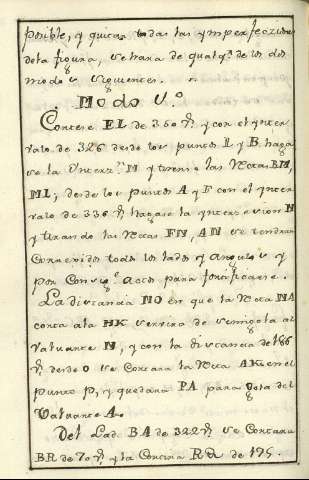 posible, y quitar todas las ymperfecziones
de la figura, se hara de qualq.ª de los dos
modos siguientes.
Modo V.º
Cortese EL de 360 y con el ynter
valo de 326 desde los puntos L y B haga
se la M y tirense las Rectas BM,
ML; desde los puntos A y F con el ynter
valo de 336 hagase la yntersecion N
y tirando las Rectas FN, AN se tendran
correxidos todos los lados y angulos y
por actos para fortificarse.
La distancia NO en que la Recta NA
corta a la HK servira de semigola al
valuarte N, y con la distancia de 186
desde O se cortara la Recta AK en el
punto P, y quedara PA para Gola del
Valuarte A.
Del Lad. BA de 322 se cortara
BR de 70 y la Cortina RQ de 175.